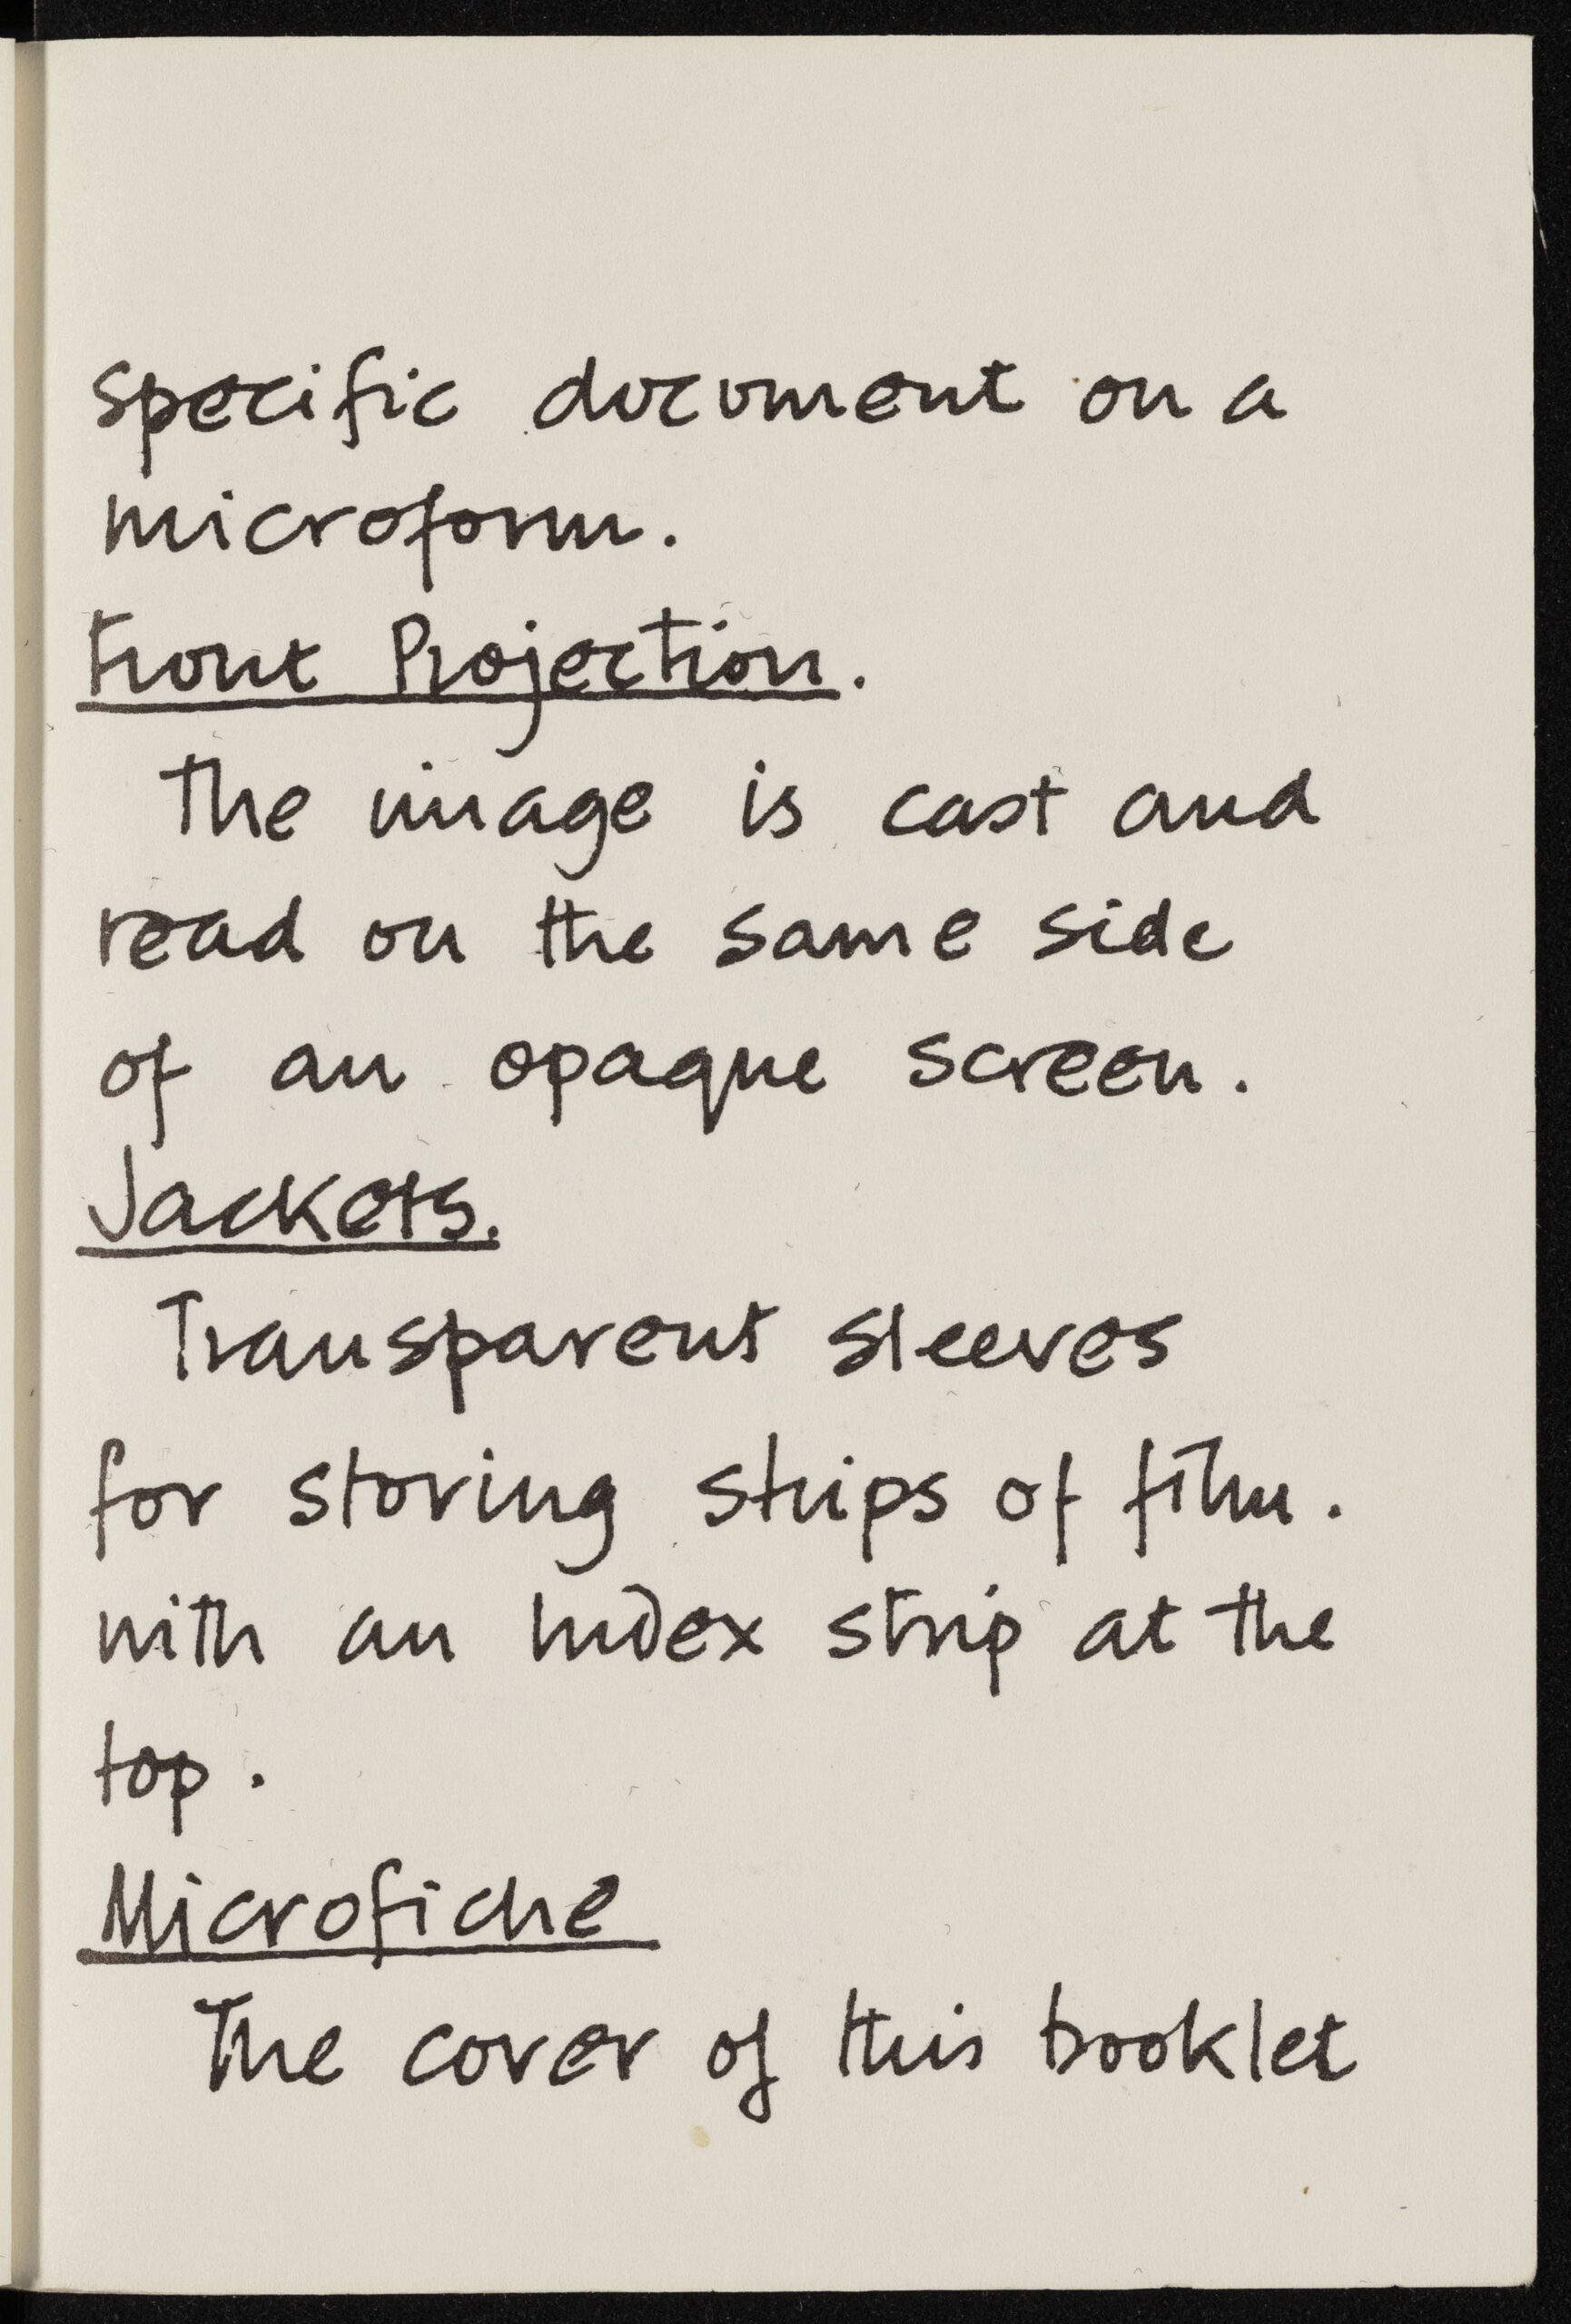 specific document on a
microform.
Front Projection.
The image is cast and
read on the same side
of an opaque screen.
Jackets.
Transparent sleeves
for storing strips of film.
with an Index strip at the
top.
Microfiche
The cover of this booklet